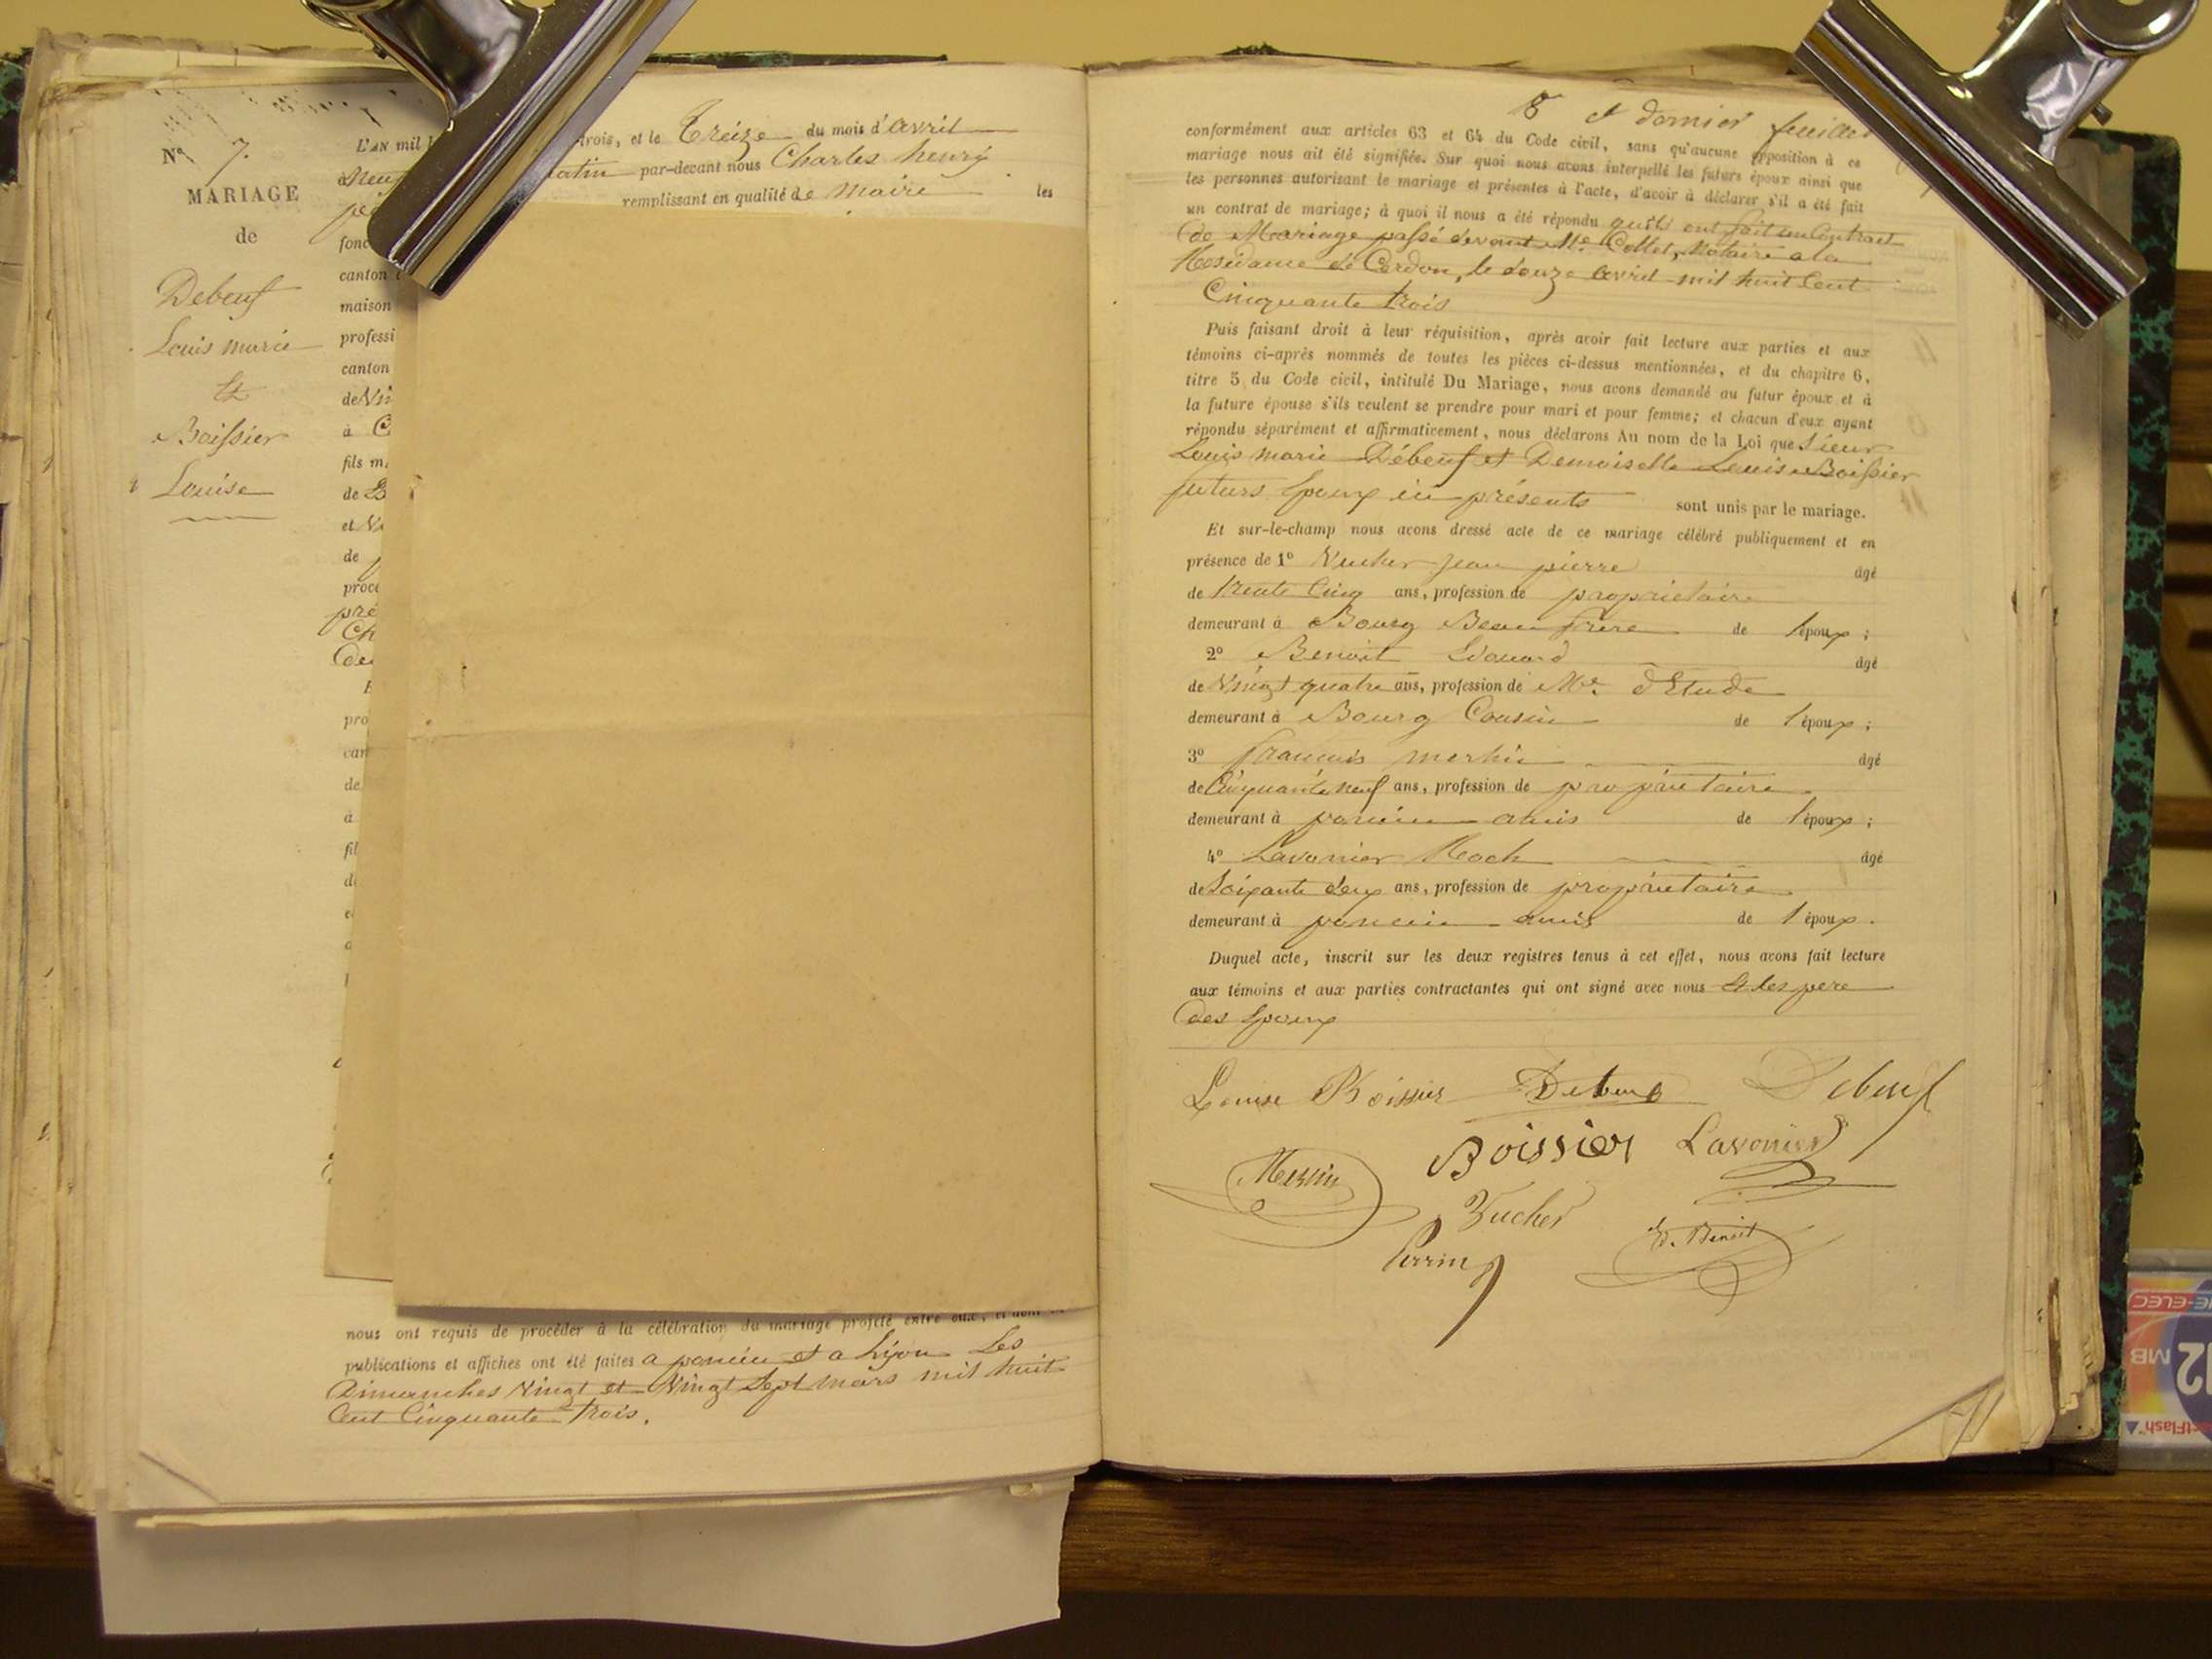 Nº 7.
MARIAGE
de
Debeuf
Louis marie
et
Boissier
Louise
L'AN mil
trois, et le Treize du mois d'avril
neuf
matin par-devant nous Charles henry
remplissant en qualité de maire les
fonc
canton
maison
professi
canton
de Vin
à C
fils m
de B
et
de
procé
pré
Ch
de
pro
can
de
à
fil
nous ont requis de procéder à la célébration du mariage projeté entre eux, et dont
publications et affiches ont été faites a poncin et a Lyon Les
Dimanches Vingt et Vingt Sept mars mil huit
Cent Cinquante trois.
8 et dernier feuillet
conformément aux articles 63 et 64 du Code civil, sans qu'aucune opposition à ce
mariage nous ait été signifiée. Sur quoi nous avons interpellé les futurs époux ainsi que
les personnes autorisant le mariage et présentes à l'acte, d'avoir à déclarer s'il a été fait
un contrat de mariage; à quoi il nous a été répondu qu'ils ont fait un Contrat
de Mariage passé devant Me Collet, Notaire a la
Residance de Cerdon, le douze avril mil huit Cent
Cinquante trois
Puis faisant droit à leur réquisition, après avoir fait lecture aux parties et aux
témoins ci-après nommés de toutes les pièces ci-dessus mentionnées, et du chapitre 6,
titre 5 du Code civil, intitulé Du Mariage, nous avons demandé au futur époux et à
la future épouse s'ils veulent se prendre pour mari et pour femme; et chacun d'eux ayant
répondu séparément et affirmativement, nous déclarons Au nom de la Loi que Sieur
Louis marie Débeuf et Demoiselle Louise Boissier
futurs Epoux ici présents sont unis par le mariage.
Et sur-le-champ nous avons dressé acte de ce mariage célébré publiquement et en
présence de 1º Vucher Jean pierre âgé
de trente Cinq ans, profession de propriétaire
demeurant à Bourg Beau frere de l'époux;
2º Benoit Edouard âgé
de Vingt quatre ans, profession de Me d'Etude
demeurant à Bourg Cousin de l'époux;
3º francois mershin âgé
de Cinquante neuf ans, profession de propriétaire
demeurant à poncin amis de l'époux;
4º Lavonier Roch âgé
de Soixante deux ans, profession de propriétaire
demeurant à poncin amis de l'époux.
Duquel acte, inscrit sur les deux registres tenus à cet effet, nous avons fait lecture
aux témoins et aux parties contractantes qui ont signé avec nous et les pere
des Epoux
Louise Boissier Debeuf Debeuf
Boissier Lavonier
Vucher
Perrin Ed. Benoit